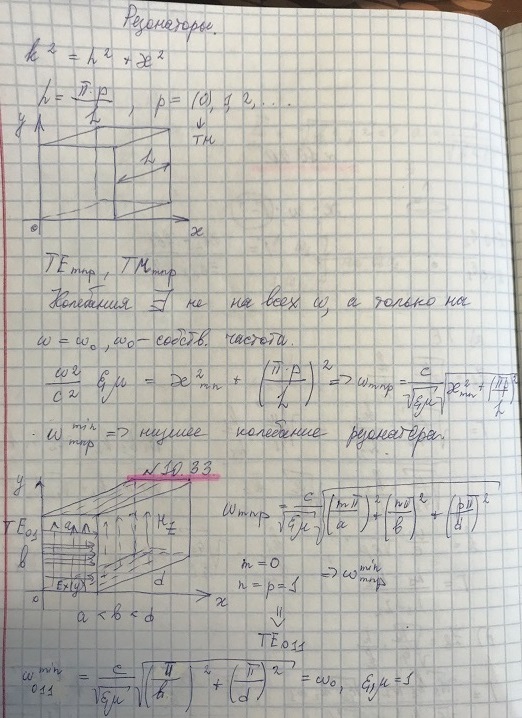 Резонаторы.
k² = h² + æ²
h = π·p/L, p = (0), 1, 2, ...
↓
TM
y
L
0
x
TEmnp, TMmnp
Колебания ∃ не на всех ω, а только на
ω = ω₀, ω₀ – собств. частота.
ω²/c² εμ = æ²mn + (π·p/L)² => ωmnp = c/√εμ √(æ²mn + (πp/L)²)
ω^min mnp => низшее колебание резонатора.
№10.33
y
TE01
a
Hz
ωmnp = c/√εμ √((mπ/a)² + (nπ/b)² + (pπ/d)²)
b
m = 0
n = p = 1
=> ω^min mnp
Ex(y)
d
0
x
a < b < d
⇓
TE011
ω^min 011 = c/√εμ √((π/b)² + (π/d)²) = ω₀, ε,μ = 1